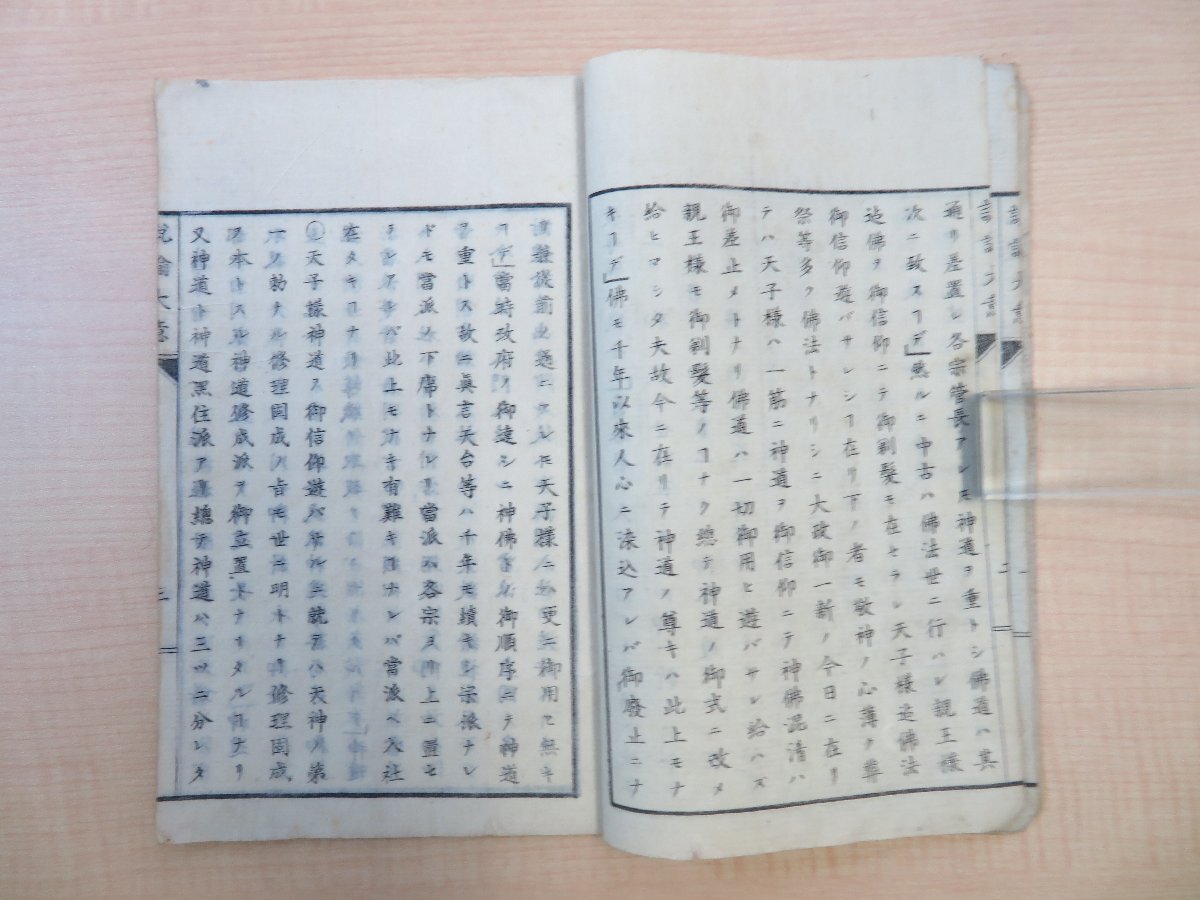 通リ差置レ各宗管長アレモ神道ヲ重トシ佛道ハ其
次ニ致スヿデ」然ルニ中古ハ佛法世ニ行ハレ親王樣
迠佛ヲ御信仰ニテ御剃髮モ在セラレ天子樣迠佛法
御信仰遊バサレシヿ在リ下ノ者モ敬神ノ心薄ク葬
祭等多ク佛法トナリシニ大政御一新ノ今日ニ在リ
テハ天子樣ハ一筋ニ神道ヲ御信仰ニテ神佛混淆ハ
御差止メトナリ佛道ハ一切御用ヒ遊バサレ給ハズ
親王樣モ御剃髮等ノヿナク總テ神道ノ御式ニ改メ
給ヒマシタ夫故今ニ在リテ神道ノ尊キハ此上モナ
キヿデ」佛モ千年以來人心ニ染込アレバ御廢止ニナ
難從前ノ通ニアレモ天子樣ニハ更ニ御用ヒ無キ
ヿデ」當時政府ノ御達シニ神佛各御順序ニテ神道
ヲ重トス故ニ眞言天台等ハ千年モ續キシ宗派ナレ
ドモ當派ノ下席トナレリ當派ハ各宗ヨリ上ニ置セ
ラレアレバ此上モナキ有難キ ナレバ當派ヘ入社
在タキヿナリ
○天子樣神道ヲ御信仰遊バサルニ就テハ天神ノ第
一ノ勅ナル修理固成ノ旨モ世ニ明トナリ修理固成
ヲ本トスル神道修成派ヲ御立置トナサタル ナリ
又神道ト神道黒住派ア 總テ神道ハ三ツニ分レタ
説諭大意
三
二